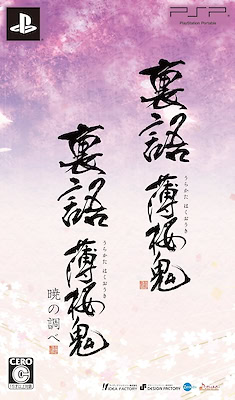 PSP
PlayStation Portable
裏語
薄桜鬼
うらかた はくおうき
裏語
薄桜鬼
うらかた はくおうき
暁の調べ
CERO
C
IDEA FACTORY
DESIGN FACTORY